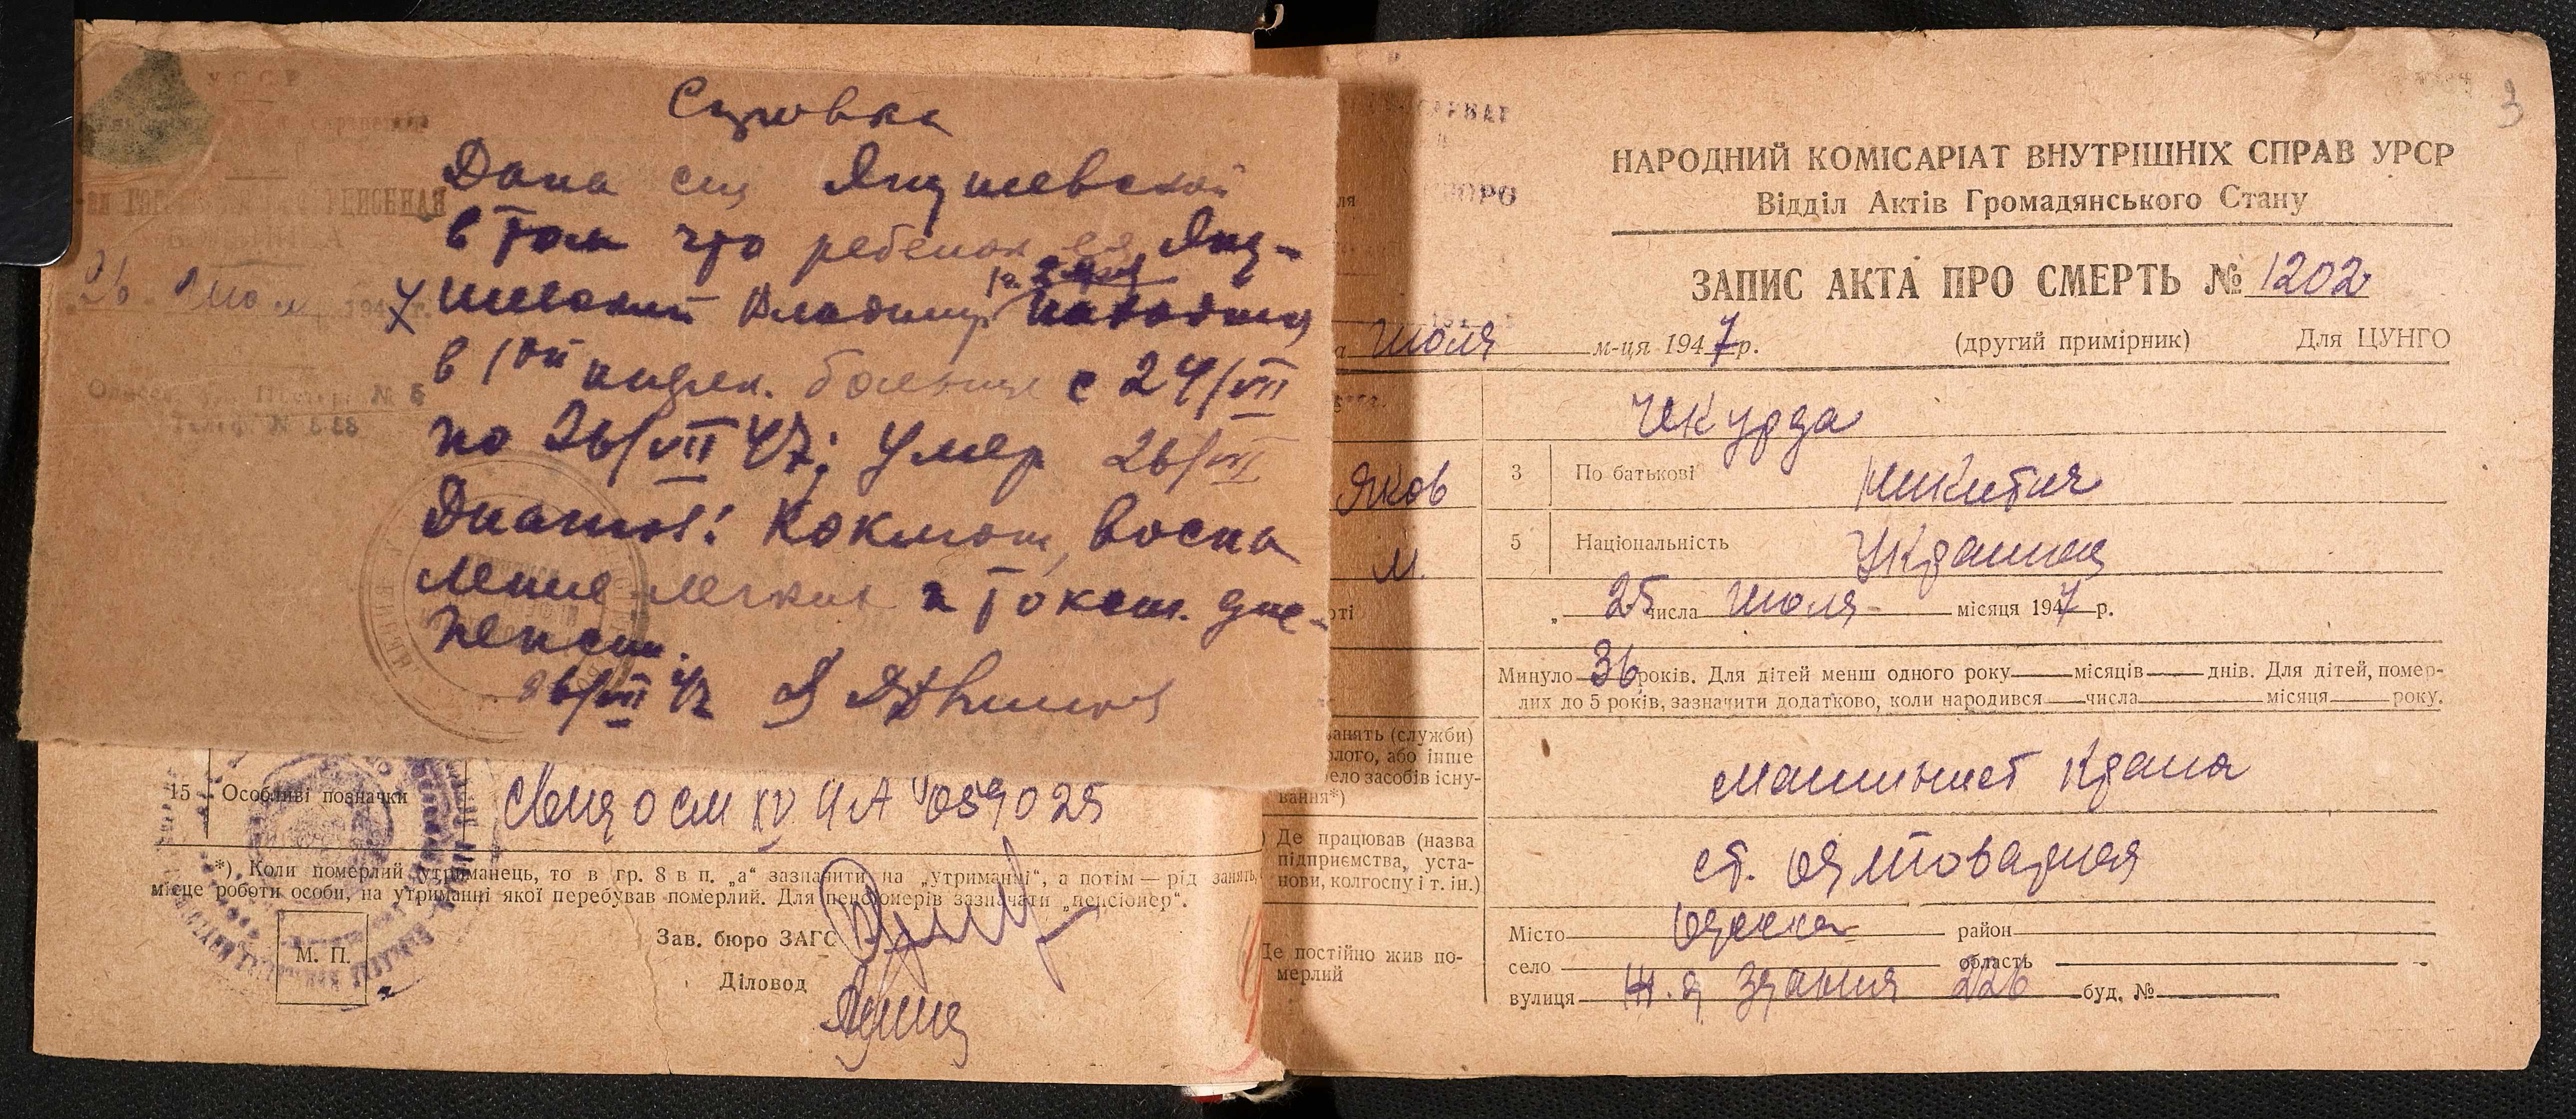 Справка
Дана сия Янушевской
в том что ребенок ея Яну-
шевский Владимир
в 1ой инфек. больнице с 24/VII
по 26/VII 47; умер 26/VII
Диагноз: Коклюш, воспа
ление легких и токсич. дис-
пепсия.
26/VII 47
26 июля 1947 г.
№ 5
15 Особливі позначки
059025
*) Коли померлий утриманець, то в гр. 8 в п. „а“ зазначити на „утриманні“, а потім — рід занять,
місце роботи особи, на утриманні якої перебував померлий. Для пенсіонерів зазначати „пенсіонер“.
М. П.
Зав. бюро ЗАГС
Діловод
3
НАРОДНИЙ КОМІСАРІАТ ВНУТРІШНІХ СПРАВ УРСР
Відділ Актів Громадянського Стану
ЗАПИС АКТА ПРО СМЕРТЬ № 1202
июля м-ця 1947 р. (другий примірник) Для ЦУНГО
Чекурда
Яков 3 По батькові Никитич
м. 5 Національність Украинец
„ 25 числа июля місяця 1947 р.
Минуло 36 років. Для дітей менш одного року місяців днів. Для дітей, помер-
лих до 5 років, зазначити додатково, коли народився числа місяця року.
занять (служби)
або інше
засобів існу-
вання*)
машинист крана
Де працював (назва
підприємства, уста-
нови, колгоспу і т. ін.)
ст. Од товарная
Де постійно жив по-
мерлий
Місто Одесса район
село область
вулиця здания 226 буд. №